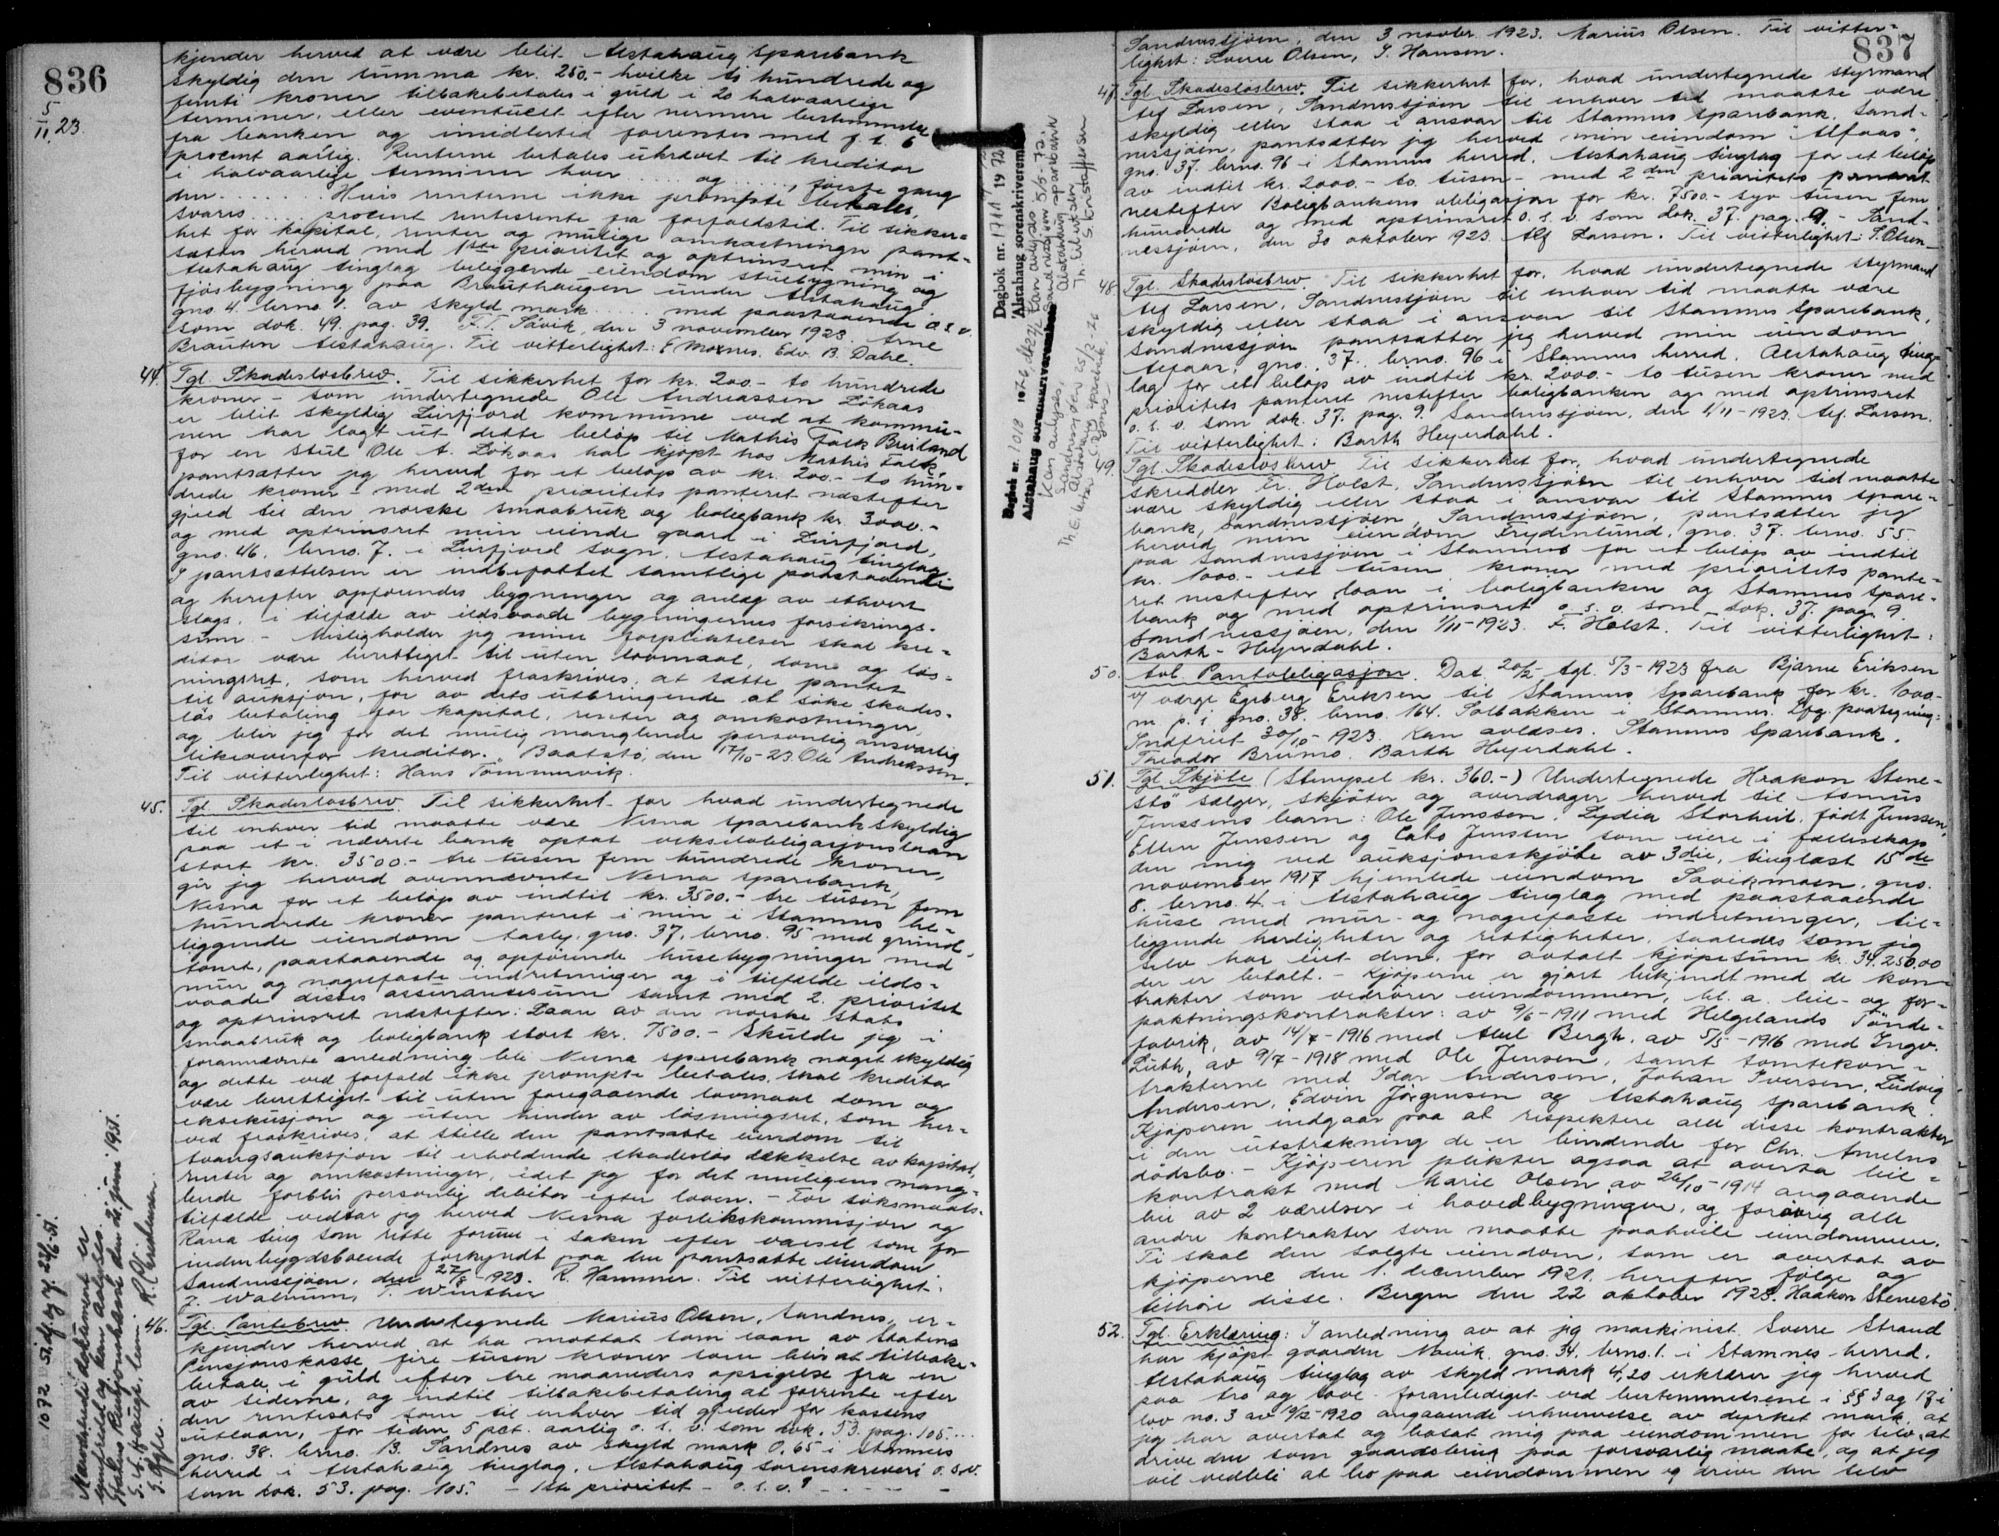 836
5/11 23.
kjender herved at være blit Alstahaug Sparebank
skyldig den summa kr. 250.- hvilke to hundrede og
femti kroner tilbakebetales i guld i 20 halvaarlige
terminer, eller eventuelt efter nærmere bestemmelse
fra banken og imidlertid forrentes med f. t. 6
procent aarlig. Renterne betales ukrævet til kreditor
i halvaarlige terminer hver .... og ...., første gang
den ...... Hvis renterne ikke prompte betales,
svares .... procent rentesrente fra forfaldstid. Til sikker=
het for kapital, renter og mulige omkostninger pant-
sættes herved med 1ste prioritet og optrinsret min i
Alstahaug tinglag beliggende eiendom stuebygning og
fjøsbygning paa Brauthaugen under Alstahaug
gno 4. brno. 1. av skyld mark .... med paastaaende o. s. v.
som dok. 49. pag. 39. F. T. Søvik, den 3 november 1923. Arne
Brauten Alstahaug. Til vitterlighet: E. Moxnes. Edv. B. Dahl.
44. Tgl. Skadesløsbrev. Til sikkerhet for kr. 200.- to hundrede
kroner - som undertegnede Ole Andreassen Løkaas
er blit skyldig Leirfjord kommune ved at kommu-
nen har lagt ut dette beløp til Mathis Falk Breiland
for en stue Ole A. Løkaas har kjøpt hos Mathis Falk,
pantsætter jeg herved for et beløp av kr. 200.- to hun-
drede kroner - med 2den prioritets panteret næstefter
gjæld til den norske smaabruk og boligbank kr. 3000.-
og med optrinsret min eiende gaard i Leirfjord,
gno. 46. brno. 7. i Leirfjord sogn. Alstahaug tinglag
I pantsættelsen er indbefattet samtlige paastaaende
og herefter opførendes bygninger og anlæg av ethvert
slags, i tilfælde av ildsvaade bygningernes forsikrings-
sum. - Misligholder jeg mine forpliktelser skal kre-
ditor være berettiget til uten lovmaal, dom og løs-
ningsret, som herved fraskrives, at sætte pantet
til auksjon, for av dets utbringende at søke skades-
løs betaling for kapital, renter og omkostninger,
og blir jeg for det mulig manglende personlig ansvarlig
likeoverfor kreditor. Baatstø, den 17/10-23. Ole Andreassen.
Til vitterlighet: Hans Tømmervik.
45. Tgl. Skadesløsbrev. Til sikkerhet for hvad undertegnede
til enhver tid maatte være Nesna sparebank skyldig
paa et i nævnte bank optat vekselobligasjonslaan
stort kr. 3500.- tre tusen fem hundrede kroner,
gir jeg herved ovennævnte Nesna sparebank,
Nesna for et beløp av indtil kr. 3500.- tre tusen fem
hundrede kroner panteret i min i Stamnes be-
liggende eiendom Aasly. gno. 37. brno. 95 med grund
tomt, paastaaende og opførende husebygninger med
mur og nagelfaste indretninger og i tilfælde ilds-
vaade disses assurancesum samt med 2. prioritet
og optrinsret næstefter: Laan av den norske stats
smaabruk og boligbank stort kr. 7500.- Skulde jeg i
forannævnte anledning bli Nesna sparebank noget skyldig
og dette ved forfald ikke prompte betales, skal kreditor
være berettiget til uten foregaaende lovmaal dom og
eksekusjon og uten hinder av løsningsret, som her-
ved fraskrives, at stille den pantsatte eiendom til
tvangsauksjon til erholdende skadesløs dækkelse av kapital,
renter og omkostninger, idet jeg for det muligens mang-
lende forblir personlig debitor efter loven. - For søksmaals-
tilfælde vedtar jeg herved Nesna forlikskommisjon og
Rana ting som rette forum i saken efter varsel som for
indenbygdsboende forkyndt paa den pantsatte eiendom
Sandnessjøen, den 27/8 1923. R. Hammer. Til vitterlighet:
J. Walnum, T. Winther
46. Tgl. Pantebrev. Undertegnede Marius Olsen, Sandnes, er-
kjender herved at ha mottat som laan av Statens
Pensjonskasse fire tusen kroner som blir at tilbake-
betale i guld efter tre maaneders opsigelse fra en
av siderne, og indtil tilbakebetaling at forrente efter
den rentesats som til enhver tid gjælder for kassens
utlaan, for tiden 5 pct. aarlig o. s. v. som dok. 53. pag. 105....
gno. 38. brno. 13. Sandnes av skyld mark 0,65 i Stamnes
herred i Alstahaug tinglag. Alstahaug sorenskriveri o. s. v.
som dok. 53. pag. 105. - 1ste prioritet - o. s. v.
1072 51.
Nærværende dokument er
innfridd og kan avlyses.
Statens Pensjonskasse den 21. juni 1951.
Dagbok nr. 1777 19 72
Alstahaug sorenskriverembete
Kan avlyses
Sandnessjøen 5/5-72.
Alstahaug sparebank
Th. Eilertsen
S. Kristoffersen
Dagbok nr. 1018 1976
Alstahaug sorenskriverembete
Kan avlyses.
837
Sandnessjøen, den 3 novbr. 1923. Marius Olsen. Til vitter-
lighet: Sverre Olsen, J. Hansen.
47. Tgl. Skadesløsbrev. Til sikkerhet for, hvad undertegnede styrmand
Alf Larsen, Sandnessjøen til enhver tid maatte være
skyldig eller staa i ansvar til Stamnes Sparebank, Sand-
nessjøen, pantsætter jeg herved min eiendom "Alfaas",
gno. 37. brno. 96 i Stamnes herred. Alstahaug tinglag for et beløp
av indtil kr. 2000.- to tusen - med 2den prioritets panteret
nestefter Boligbankens obligasjon for kr. 7500.- syv tusen fem
hundrede og med optrinsret o. s. v. som dok. 37. pag. 9. - Sand-
nessjøen, den 30 oktober 1923 Alf Larsen. Til vitterlighet: S. Olsen
48. Tgl. Skadesløsbrev. Til sikkerhet for, hvad undertegnede styrmand
Alf Larsen, Sandnessjøen til enhver tid maatte være
skyldig eller staa i ansvar til Stamnes Sparebank,
Sandnessjøen pantsætter jeg herved min eiendom
Alfaas, gno. 37. brno. 96 i Stamnes herred. Alstahaug ting-
lag for et beløp av indtil kr. 2000.- to tusen kroner med
prioritets panteret nestefter boligbanken og med optrinsret
o. s. v. som dok. 37. pag. 9. Sandnessjøen, den 1/11-1923. Alf Larsen.
Til vitterlighet: Barth Heyerdahl.
49. Tgl. Skadesløsbrev. Til sikkerhet for, hvad undertegnede
skrædder Fr. Holst, Sandnessjøen til enhver tid maatte
være skyldig eller staa i ansvar til Stamnes Spare-
bank, Sandnessjøen, Sandnessjøen, pantsætter jeg
herved min eiendom Frydenlund, gno. 37. brno. 55.
paa Sandnessjøen i Stamnes for et beløp av indtil
kr. 1000.- ett tusen kroner med prioritets pante-
ret nestefter laan i boligbanken og Stamnes Spare-
bank og med optrinsret o. s. v. som dok. 37. pag. 9.
Sandnessjøen, den 1/11-1923. F. Holst. Til vitterlighet:
Barth-Heyerdahl.
50. Avl. Pantobligasjon. Dat. 20/2 tgl. 5/3-1923 fra Bjarne Eriksen
v/ værge Egeberg Eriksen til Stamnes Sparebank for kr. 1000.-
m. p. i gno. 38. brno. 164. Solbakken i Stamnes. Lfg. paategning:
Indfriet 30/10-1923. Kan avlæses. Stamnes Sparebank.
Theodor Bruno. Barth Heyerdahl.
51. Tgl. Skjøte (Stempel kr. 360.-) Undertegnede Haakon Stene-
stø sælger, skjøter og overdrager herved til Asmus
Jenssens barn: Ole Jenssen, Lydia Storheil, født Jenssen,
Ellen Jenssen og Cato Jenssen som eiere i fællesskap
den mig ved auksjonsskjøte av 3die, tinglæst 15de
november 1917 hjemlede eiendom Søvikmoen, gno.
8. brno. 4. i Alstahaug tinglag med paastaaende
huse med mur- og nagelfaste indretninger, til-
liggende herligheter og rettigheter, saaledes som jeg
selv har eiet den, for avtalt kjøpesum kr. 34.250.00
der er betalt. - Kjøperne er gjort bekjendt med de kon-
trakter som vedrører eiendommen, bl. a. leie- og for-
paktningskontrakter: av 9/6-1911 med Helgelands Tønde-
fabrik, av 14/7-1916 med Abel Bergh, av 5/5-1916 med Ingv.
Luth, av 9/7-1918 med Ole Jensen, samt tomtekon-
trakterne med Idar Andersen, Johan Iversen, Ludvig
Andersen, Edvin Jørgensen og Alstahaug sparebank.
Kjøperen indgaar paa at respektere alle disse kontrakter
i den utstrekning de er bindende for Chr. Amelns
dødsbo. - Kjøperen plikter ogsaa at overta leie-
kontrakt med Marie Olsen av 26/10-1914 angaaende
leie av 2 værelser i hovedbygningen, og forøvrig alle
andre kontrakter som maatte paahvile eiendommen.
Ti skal den solgte eiendom, som er overtat av
kjøperne den 1. december 1921. herefter følge og
tilhøre disse. Bergen den 22 oktober 1923. Haakon Stenestø
52. Tgl. Erklæring: I anledning av at jeg maskinist Sverre Strand
har kjøpt gaarden Navik. gno. 34. brno. 1. i Stamnes herred.
Alstahaug tinglag av skyld mark 4,20 erklærer jeg herved
paa tro og love - foranlediget ved bestemmelsene i §§ 3 og 17 i
lov no. 3 av 10/12-1920 angaaende erhvervelse av dyrket mark, at
jeg har overtat og bosat mig paa eiendommen for selv at
drive den som gaardsbruk paa forsvarlig maate, og at jeg
vil vedbli at bo paa eiendommen og drive den selv